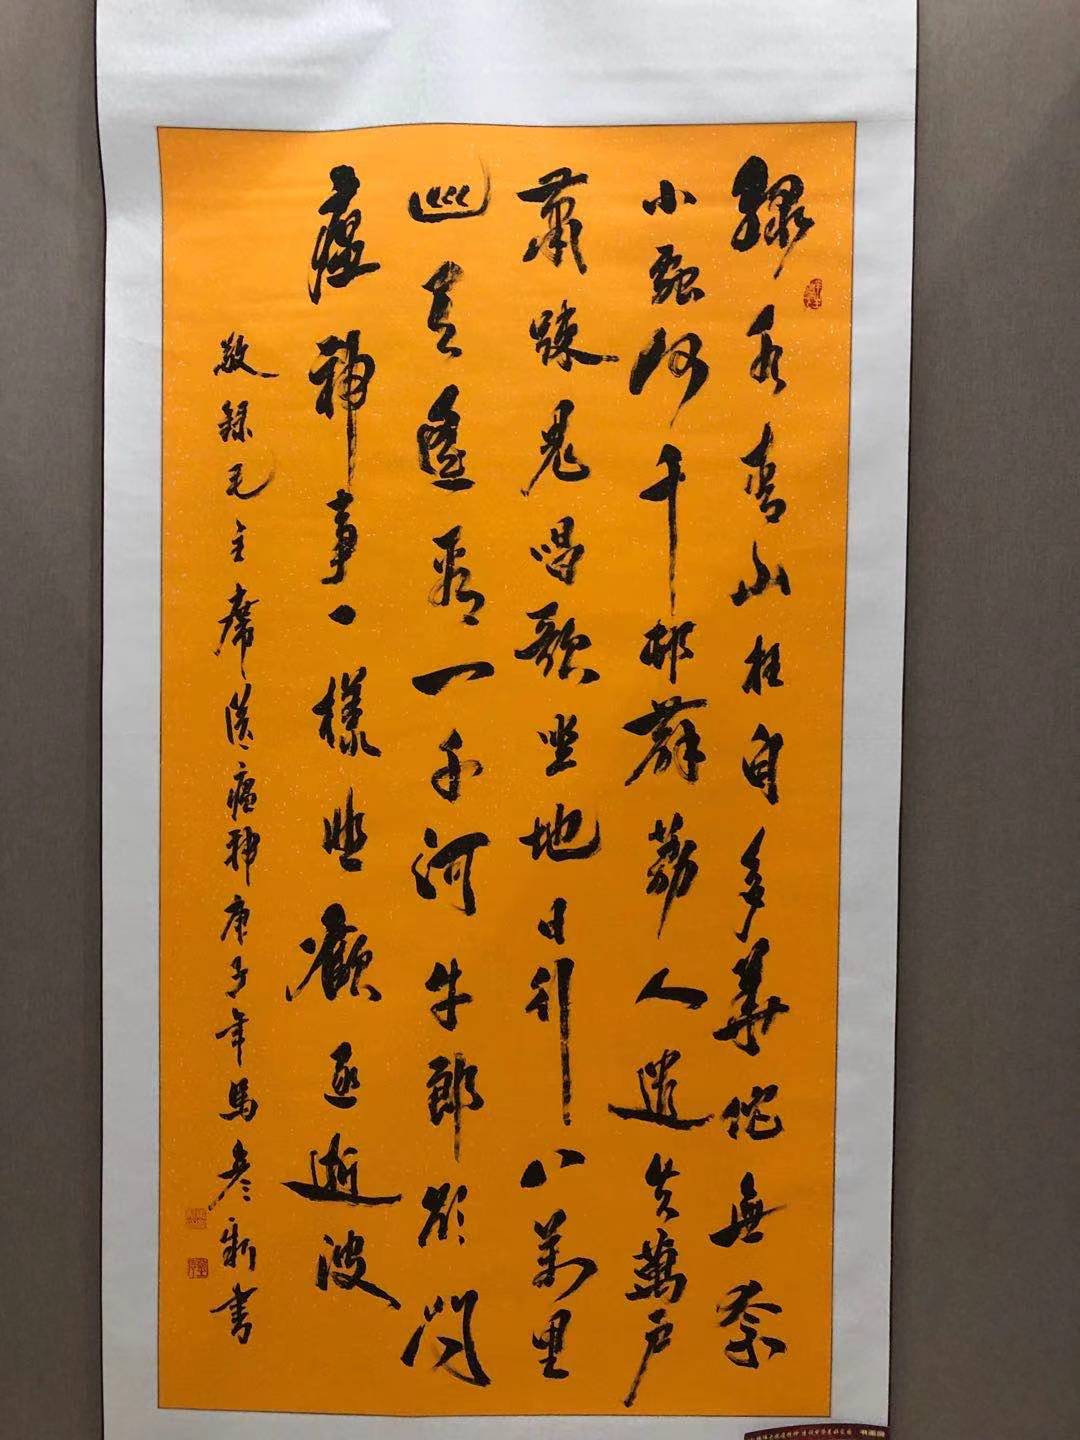 綠水青山枉自多華佗無奈
小蟲何千邨薜荔人遺矢萬戶
蕭疎鬼唱歌坐地日行八萬里
巡天遙看一千河牛郎欲問
瘟神事一樣悲歡逐逝波
敬録毛主席送瘟神庚子年馬彦新书